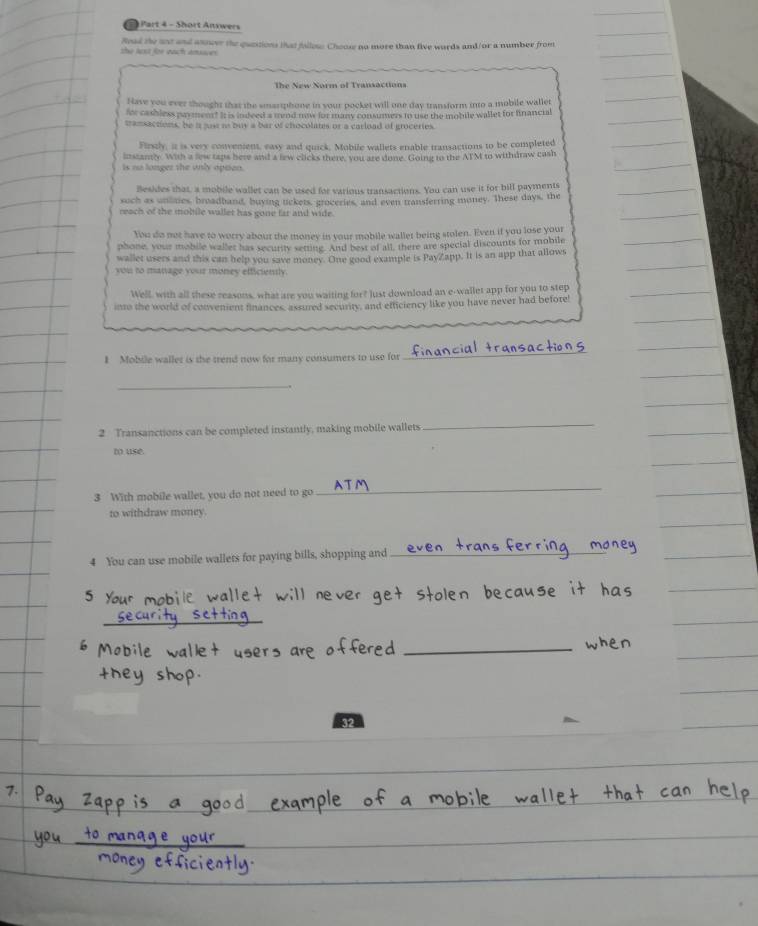 Part 4 - Short Answers
Read the text and answer the questions that follow. Choose no more than five words and/or a number from
the text for each answer.
The New Norm of Transactions
Have you ever thought that the smartphone in your pocket will one day transform into a mobile wallet
for cashless payment? It is indeed a trend now for many consumers to use the mobile wallet for financial
transactions, be it just to buy a bar of chocolates or a carload of groceries.
Firstly, it is very convenient, easy and quick. Mobile wallets enable transactions to be completed
instantly. With a few taps here and a few clicks there, you are done. Going to the ATM to withdraw cash
is no longer the only option.
Besides that, a mobile wallet can be used for various transactions. You can use it for bill payments
such as utilities, broadband, buying tickets, groceries, and even transferring money. These days, the
reach of the mobile wallet has gone far and wide.
You do not have to worry about the money in your mobile wallet being stolen. Even if you lose your
phone, your mobile wallet has security setting. And best of all, there are special discounts for mobile
wallet users and this can help you save money. One good example is PayZapp. It is an app that allows
you to manage your money efficiently.
Well, with all these reasons, what are you waiting for? Just download an e-wallet app for you to step
into the world of convenient finances, assured security, and efficiency like you have never had before!
1 Mobile wallet is the trend now for many consumers to use for financial transactions
2 Transanctions can be completed instantly, making mobile wallets
to use.
3 With mobile wallet, you do not need to go ATM
to withdraw money.
4 You can use mobile wallets for paying bills, shopping and even transferring money
5 Your mobile wallet will never get stolen because it has
security setting
6 Mobile wallet users are offered when
they shop.
32
7. Pay Zapp is a good example of a mobile wallet that can help
you to manage your
money efficiently.